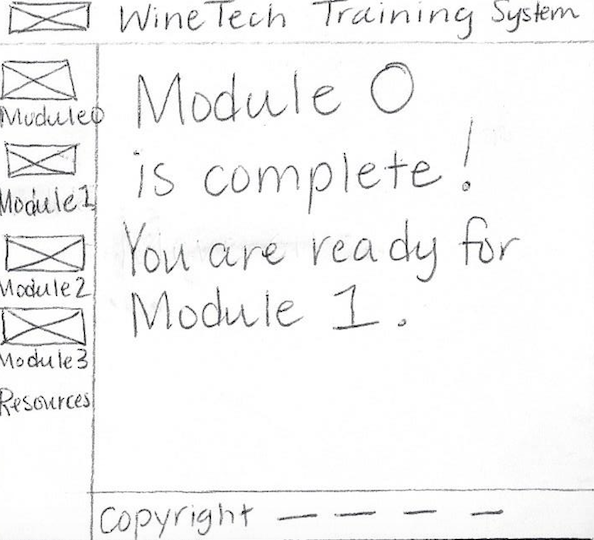 WineTech Training System
Module 0
Module 1
Module 2
Module 3
Resources
Module 0
is complete!
You are ready for
Module 1.
Copyright